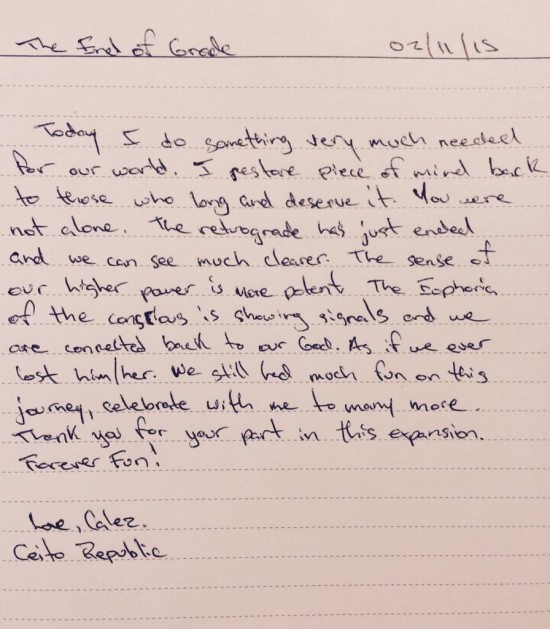 The End of Grade 02/11/15
Today I do something very much needed
for our world. I restore piece of mind back
to those who long and deserve it. You were
not alone. The retrograde has just ended
and we can see much clearer. The sense of
our higher power is more potent. The Euphoria
of the conscious is showing signals and we
are connected back to our God. As if we ever
lost him/her. We still had much fun on this
journey, celebrate with me to many more.
Thank you for your part in this expansion.
Forever Fun!
Love, Calez.
Ceito Republic